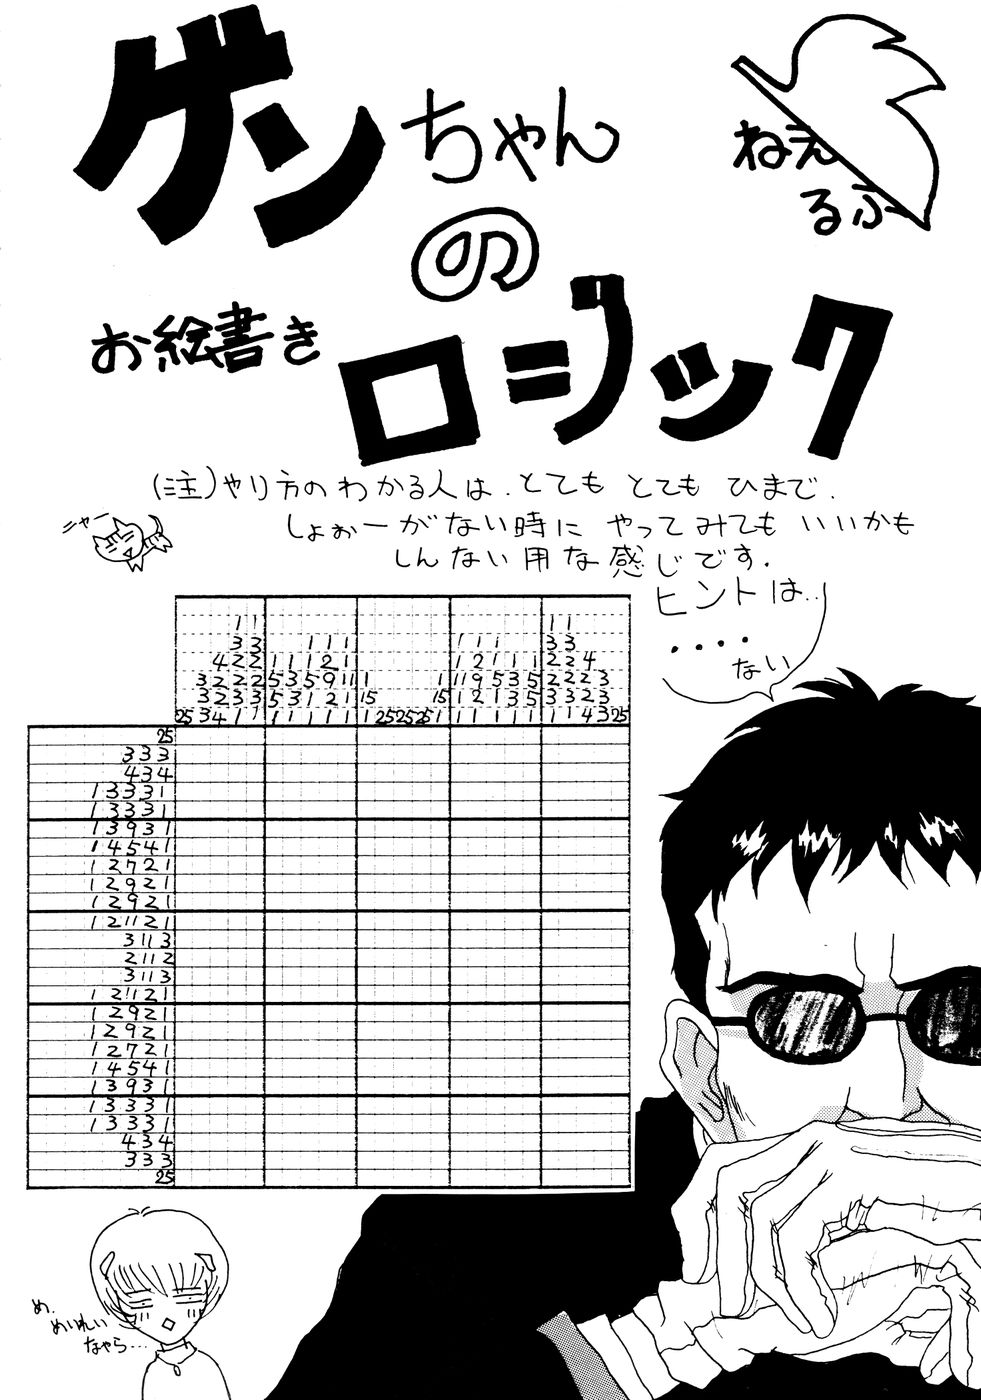 ゲンちゃん
の
お絵書き
ロジック
ねえ
るふ
(注)やり方のわかる人は、とても とても ひまで、
しょぉーがない時に やってみても いいかも
しんない用な感じです。
ニャー
ヒントは‥
・・・・
ない
25
3 3 3
4 3 4
1 3 3 3 1
1 3 3 3 1
1 3 9 3 1
1 4 5 4 1
1 2 7 2 1
1 2 9 2 1
1 2 9 2 1
1 2 11 2 1
3 11 3
2 11 2
3 11 3
1 2 11 2 1
1 2 9 2 1
1 2 9 2 1
1 2 7 2 1
1 4 5 4 1
1 3 9 3 1
1 3 3 3 1
1 3 3 3 1
4 3 4
3 3 3
25
め、
めいれい
なゃら…